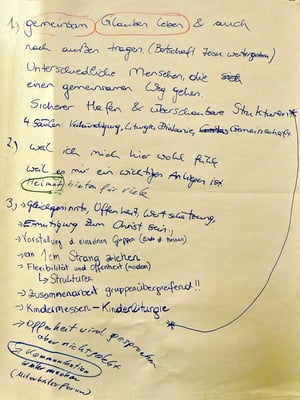 1.) gemeinsam Glauben leben & auch
nach außen tragen. (Botschaft Jesu weitergeben)
Unterschiedliche Menschen, die
einen gemeinsamen Weg gehen.
Sicherer Hafen & überschaubare Strukturen*
4 Säulen: Verkündigung, Liturgie, Diakonie, Gemeinschaft
2.) weil ich mich hier wohl fühle
weil es mir ein wichtiges Anliegen ist
Heimat bieten für viele
3.) → Gleichgesinnte, Offenheit, Wertschätzung,
→ Ermutigung zum Christ sein!,
→ Vorstellung d. einzelnen Gruppen
→ an 1em Strang ziehen
→ Flexibilität und Offenheit (modern)
↳ Strukturen
→ Zusammenarbeit gruppenübergreifend!!
→ Kindermessen - Kinderliturgie
→ Offenheit wird gesprochen *
aber nicht gelebt
Kommunikation
(Mitarbeiterforum)